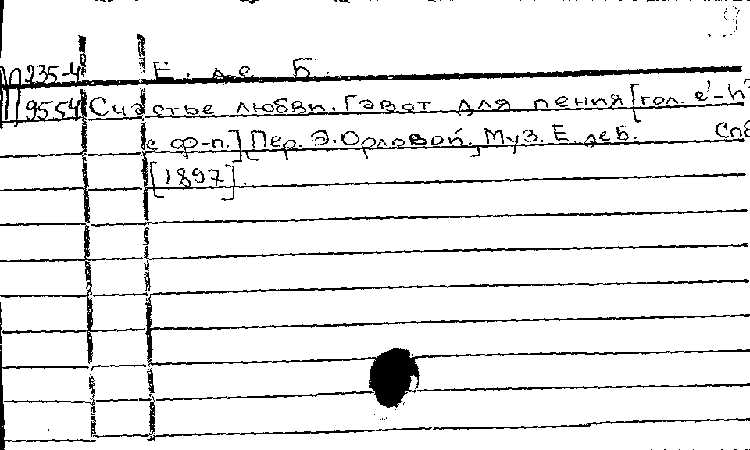 235-4 Е. де Б.
9554 Счастье любви. Гавот для пения [гол. e'-h²
с ф-п.] [Пер. Э. Орловой.] Муз. Е. де Б. Спб
[1897].